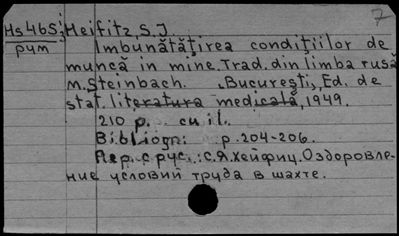 7
Hs465; Heifitz, S.J.
рум Îmbunătățirea condițiilor de
muncă în mine. Trad. din limba rusă
M. Steinbach. București, Ed. de
stat. literatura medicală, 1949.
210 p. cu il.
Bibliogr: p. 204-206.
Пер. с рус.: С.Я. Хейфиц. Оздоровле-
ние условий труда в шахте.